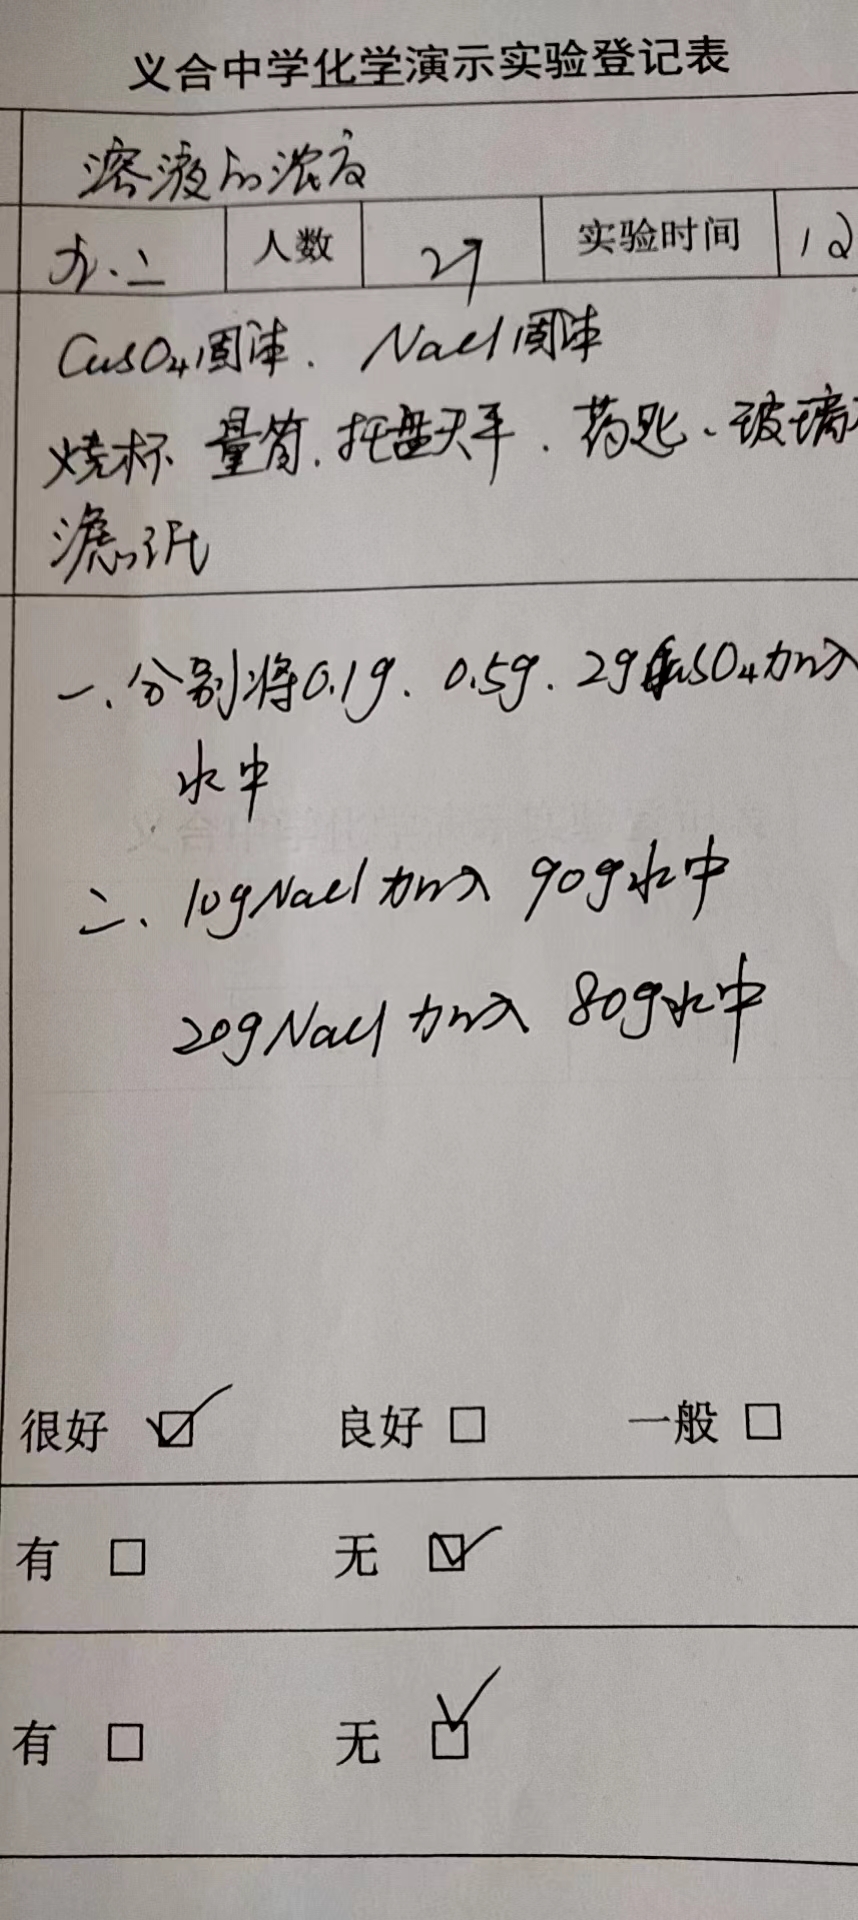 义合中学化学演示实验登记表
溶液的浓度
九.二 人数 27 实验时间 12
CuSO4固体. NaCl固体
烧杯 量筒. 托盘天平. 药匙、玻璃
滤纸
一、分别将0.1g、0.5g、2gCuSO4加入
水中
二、10gNaCl加入 90g水中
20gNaCl加入 80g水中
很好 ☑ 良好 □ 一般 □
有 □ 无 ☑
有 □ 无 ☑